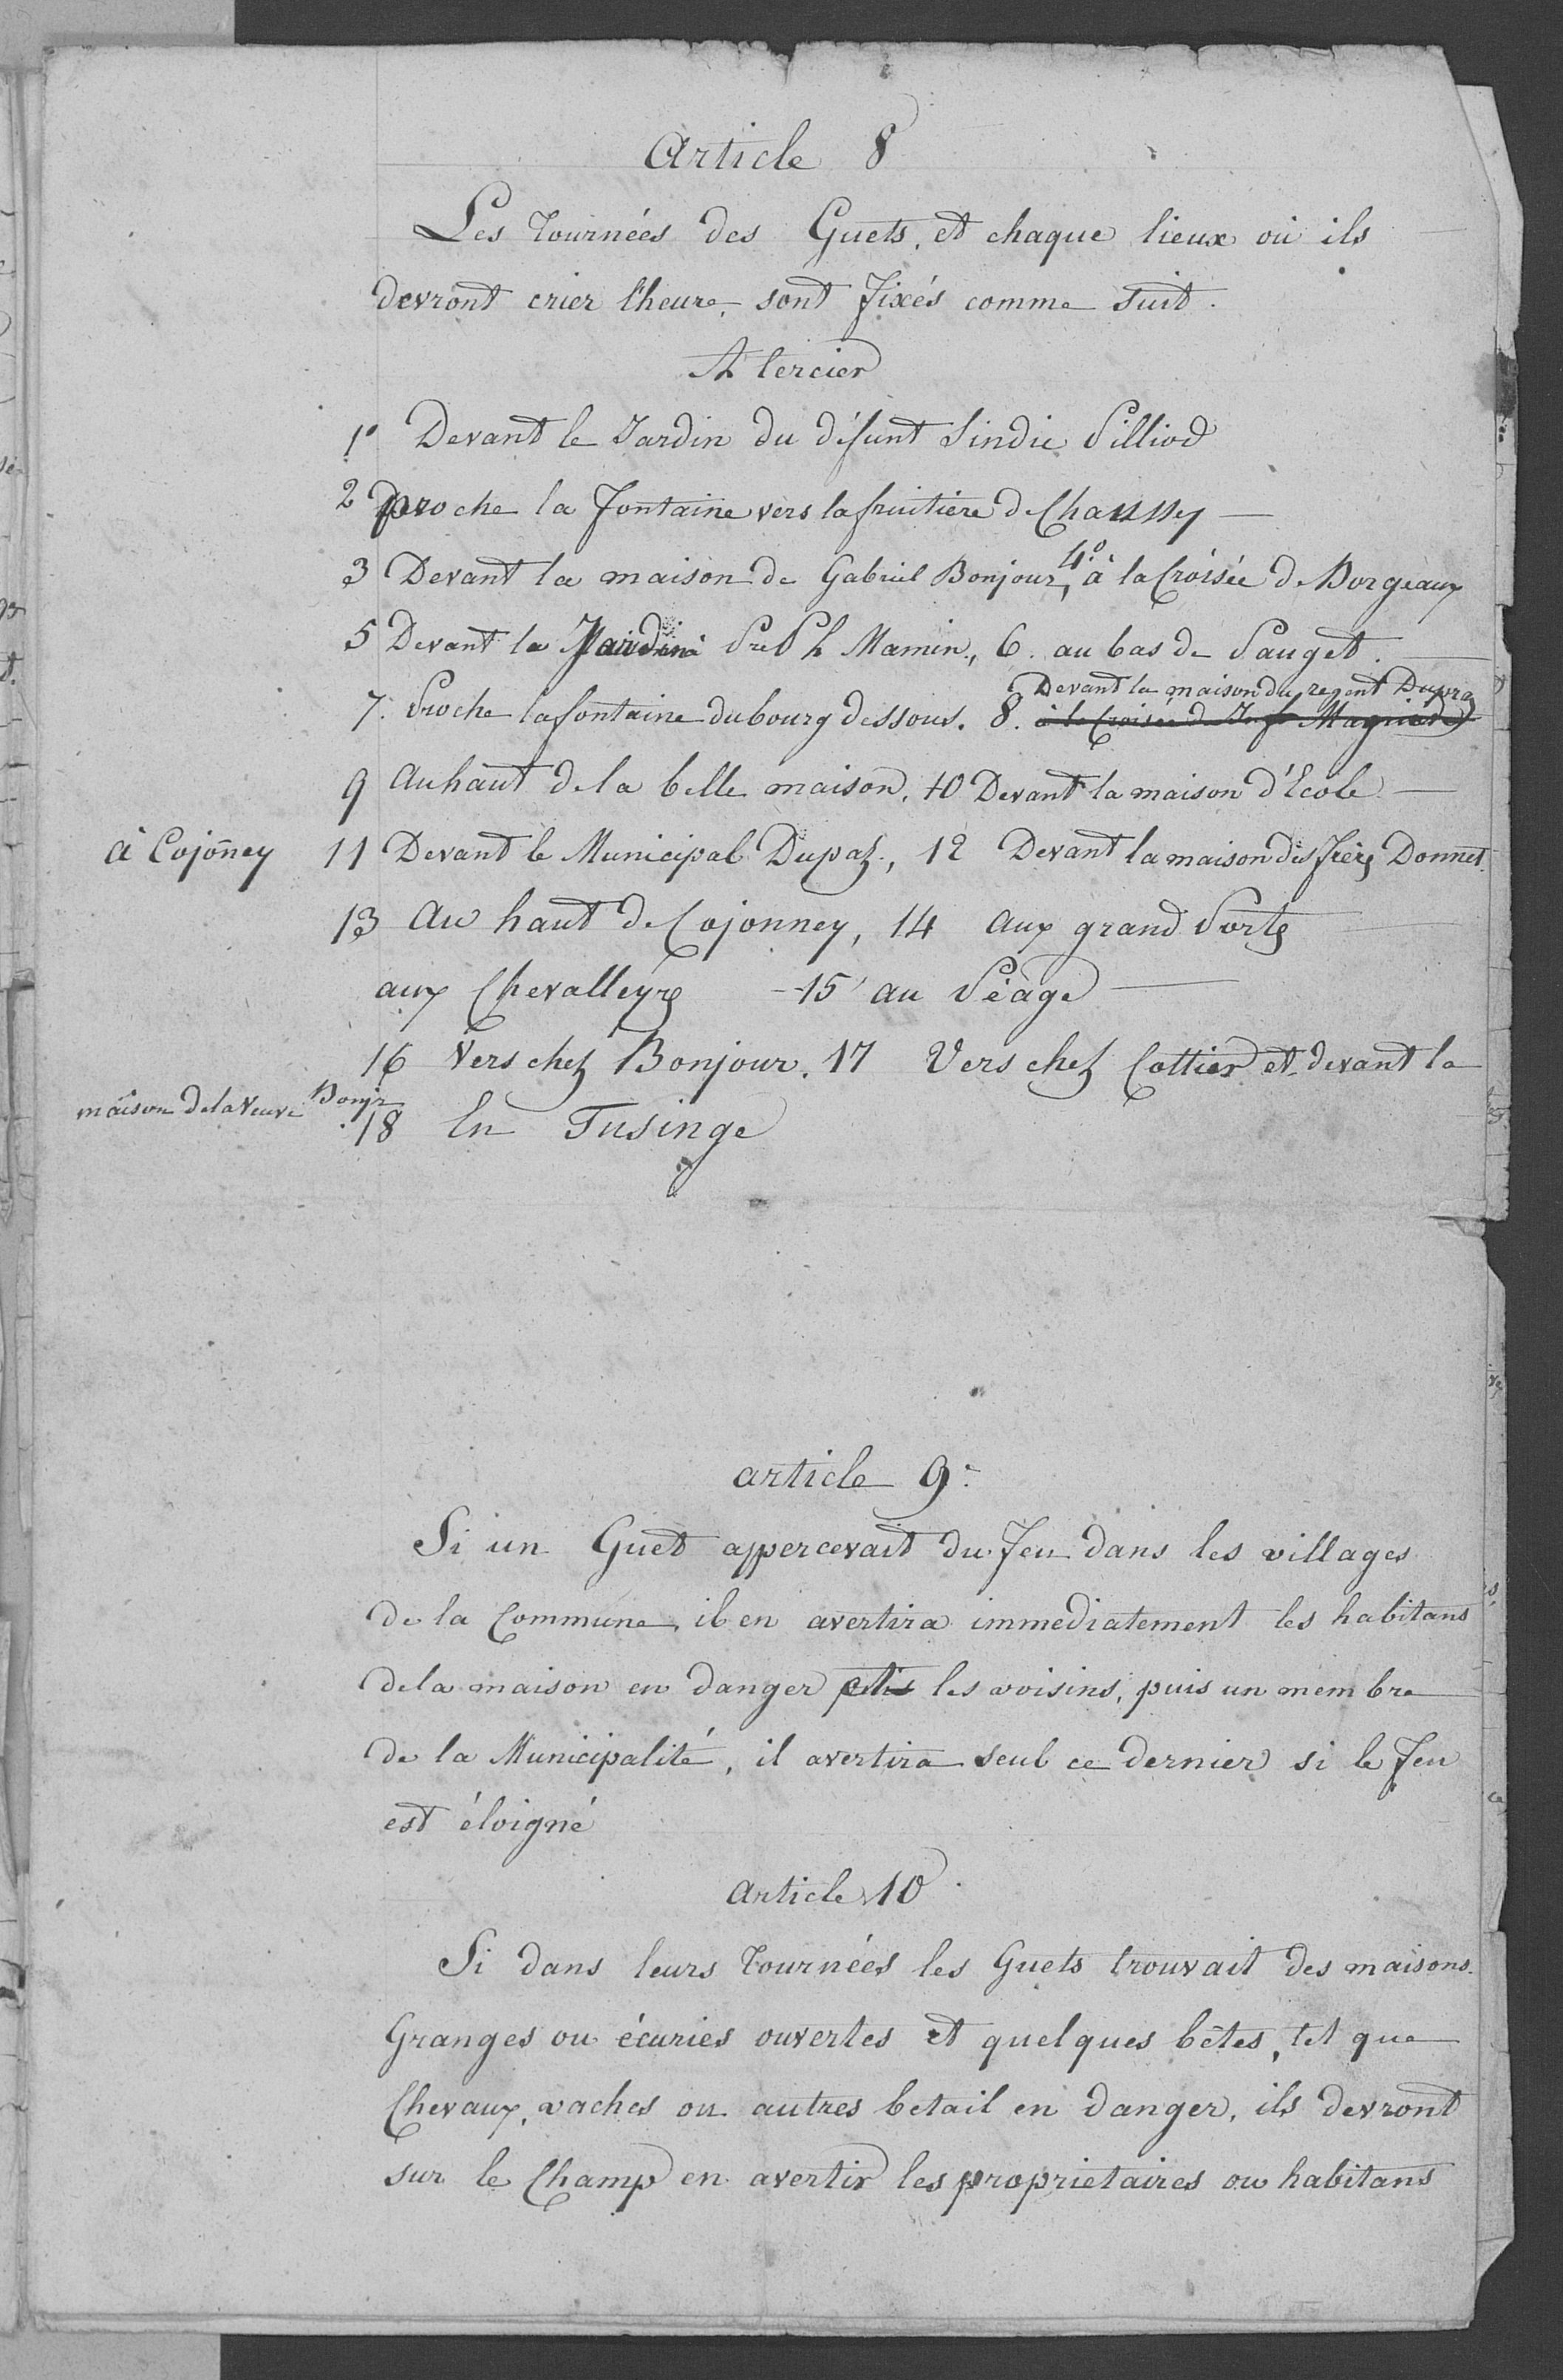 Article 8
Les Tournées des Guets, et chaque lieux où ils
devront crier l'heure, sont fixés comme suit.
A lercier
1° Devant le Jardin du défunt Sindic Pilliod
2 proche la Fontaine vers la fruitière de Chaussy
3 Devant la maison de Gabriel Bonjour, 4° à la Croisée de Borgeaux
5 Devant le Jardin à Mamin, 6. au bas de Pauget.
Devant la maison du regent Dupraz
7. Proche la fontaine du bourg dessous. 8. à la Croisée de Magnin
9 Au haut de la belle maison, 10 Devant la maison d'Ecole
à Cojonney 11 Devant le Municipal Dupaz, 12 Devant la maison des frères Donnet
13 Au haut de Cojonney, 14 aux grand Portes
aux Chevalleyres - 15 au Péage
16 Vers chez Bonjour. 17 Vers chez Cottier et devant la
maison de la Veuve Bonjr
18 En Tusinge
article 9.
Si un Guet appercevait du Feu dans les villages
de la Commune, il en avertira immediatement les habitans
de la maison en danger les voisins, puis un membre
de la Municipalité, il avertira seul ce dernier si le Feu
est éloigné
Article 10
Si dans leurs Tournées les Guets trouvait des maisons
Granges ou écuries ouvertes et quelques bêtes, tel que
Chevaux, vaches ou autres betail en danger, ils devront
sur le Champ en avertir les proprietaires ou habitans